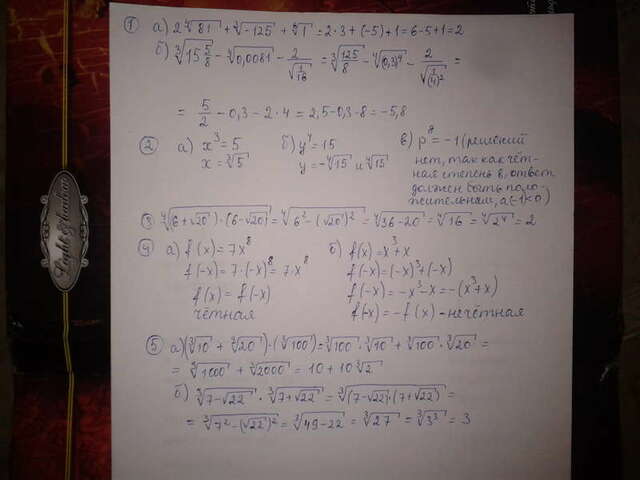 1 а) 2∜81 + ∛-125 + ⁶√1 = 2·3 + (-5) + 1 = 6-5+1 = 2
б) ∛(15 5/8) - ∜0,0081 - 2/√(1/16) = ∛(125/8) - ∜(0,3)⁴ - 2/√(1/(4)²) =
= 5/2 - 0,3 - 2·4 = 2,5-0,3-8 = -5,8
2 а) x³ = 5
x = ∛5
б) y⁴ = 15
y = -∜15 и ∜15
в) p⁸ = -1 (решений
нет, так как чёт-
ная степень в, ответ
должен быть поло-
жительным, а (-1<0)
3 ∜((6+√20)·(6-√20)) = ∜(6²-(√20)²) = ∜(36-20) = ∜16 = ∜2⁴ = 2
4 а) f(x) = 7x⁸
f(-x) = 7·(-x)⁸ = 7·x⁸
f(x) = f(-x)
чётная
б) f(x) = x³+x
f(-x) = (-x)³+(-x)
f(-x) = -x³-x = -(x³+x)
f(-x) = -f(x) - нечётная
5 а) (∛10 + ∛20)·(∛100) = ∛100·∛10 + ∛100·∛20 =
= ∛1000 + ∛2000 = 10 + 10∛2
б) ∛(7-√22) · ∛(7+√22) = ∛((7-√22)·(7+√22)) =
= ∛(7²-(√22)²) = ∛(49-22) = ∛27 = ∛3³ = 3